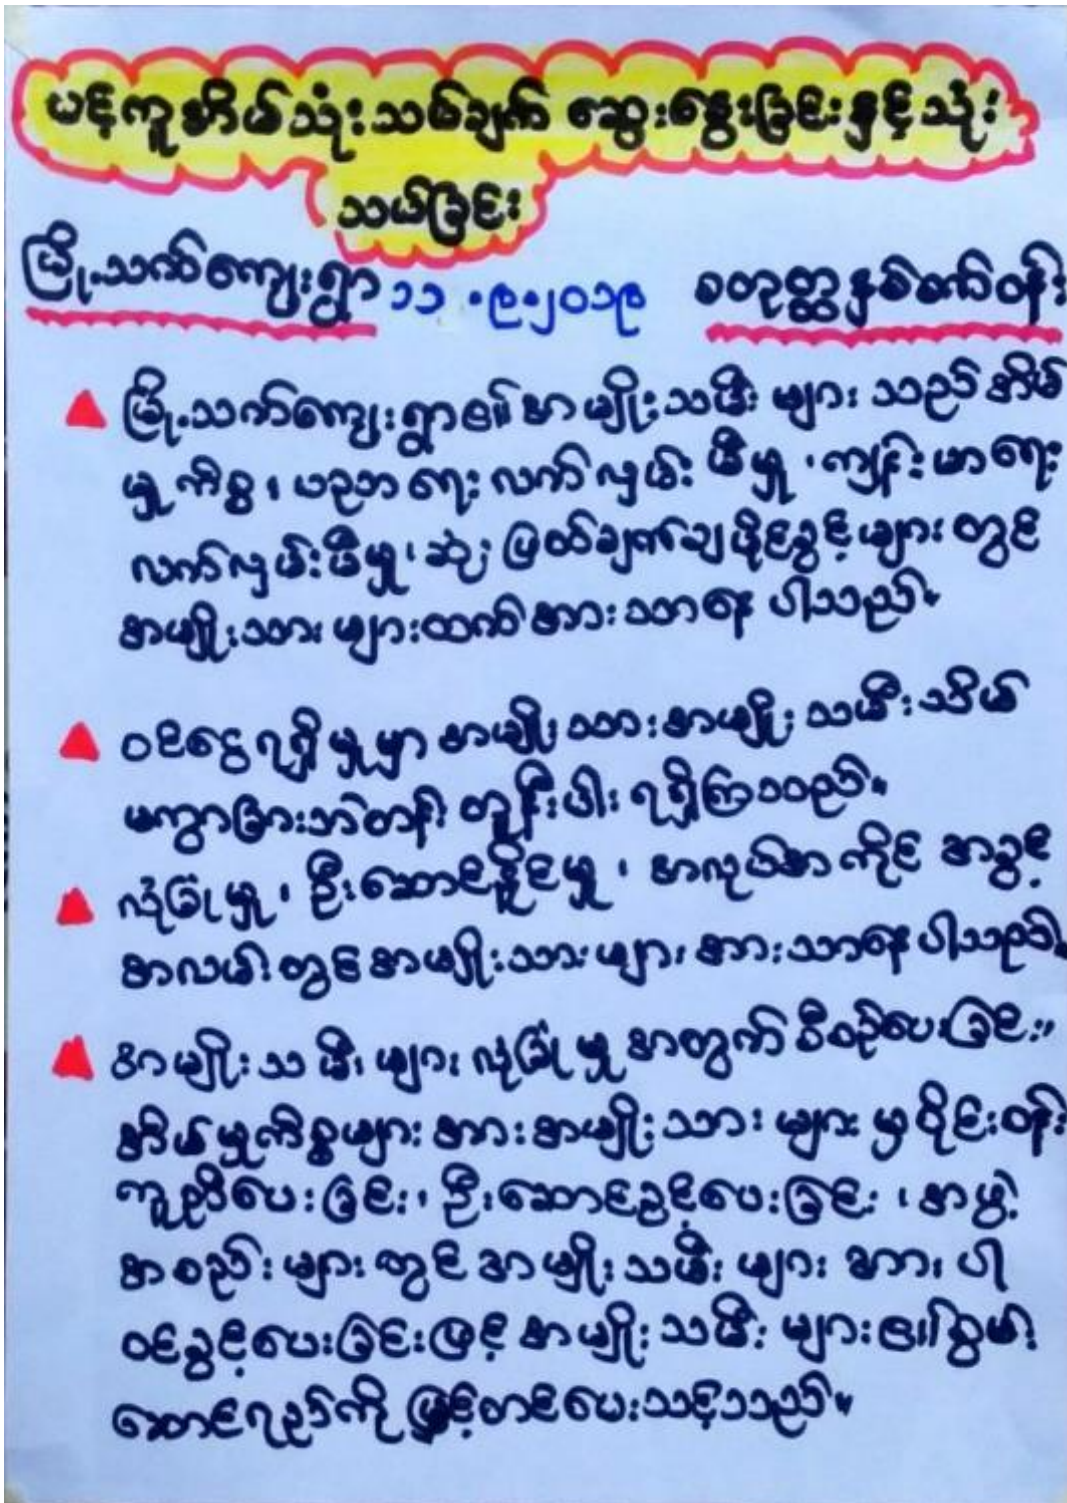 ပင့်ကူအိမ်သုံးသပ်ချက် ဆွေးနွေးခြင်းနှင့်သုံး
သပ်ခြင်း
မြို့သက်ကျေးရွာ ၁၁.၉.၂၀၁၉ စတုတ္ထနှစ်စက်ဝန်း
မြို့သက်ကျေးရွာ၏ အမျိုးသမီး များ သည် အိမ်
မှုကိစ္စ၊ ပညာရေး လက်လှမ်း မီမှု၊ ကျန်းမာရေး
လက်လှမ်းမီမှု၊ ဆုံးဖြတ်ချက်ချပိုင်ခွင့်များ တွင်
အမျိုးသား များထက် အားသာနေ ပါသည်။
ဝင်ငွေရရှိမှုမှာ အမျိုးသားအမျိုးသမီးသိပ်
မကွာခြားဘဲတန်းတူနီးပါး ရရှိကြသည်။
လုံခြုံမှု၊ ဦးဆောင်နိုင်မှု၊ အလုပ်အကိုင် အခွင့်
အလမ်းတွင် အမျိုးသားများ အားသာနေပါသည်။
အမျိုးသမီးများ လုံခြုံမှု အတွက် စီစဉ်ပေးခြင်း၊
အိမ်မှုကိစ္စများအား အမျိုးသား များ မှ ဝိုင်းဝန်း
ကူညီပေးခြင်း၊ ဦးဆောင်ခွင့်ပေးခြင်း၊ အဖွဲ့
အစည်းများတွင် အမျိုးသမီး များ အား ပါ
ဝင်ခွင့်ပေးခြင်းဖြင့် အမျိုးသမီး များ၏စွမ်း
ဆောင်ရည်ကို မြှင့်တင်ပေးသင့်သည်။